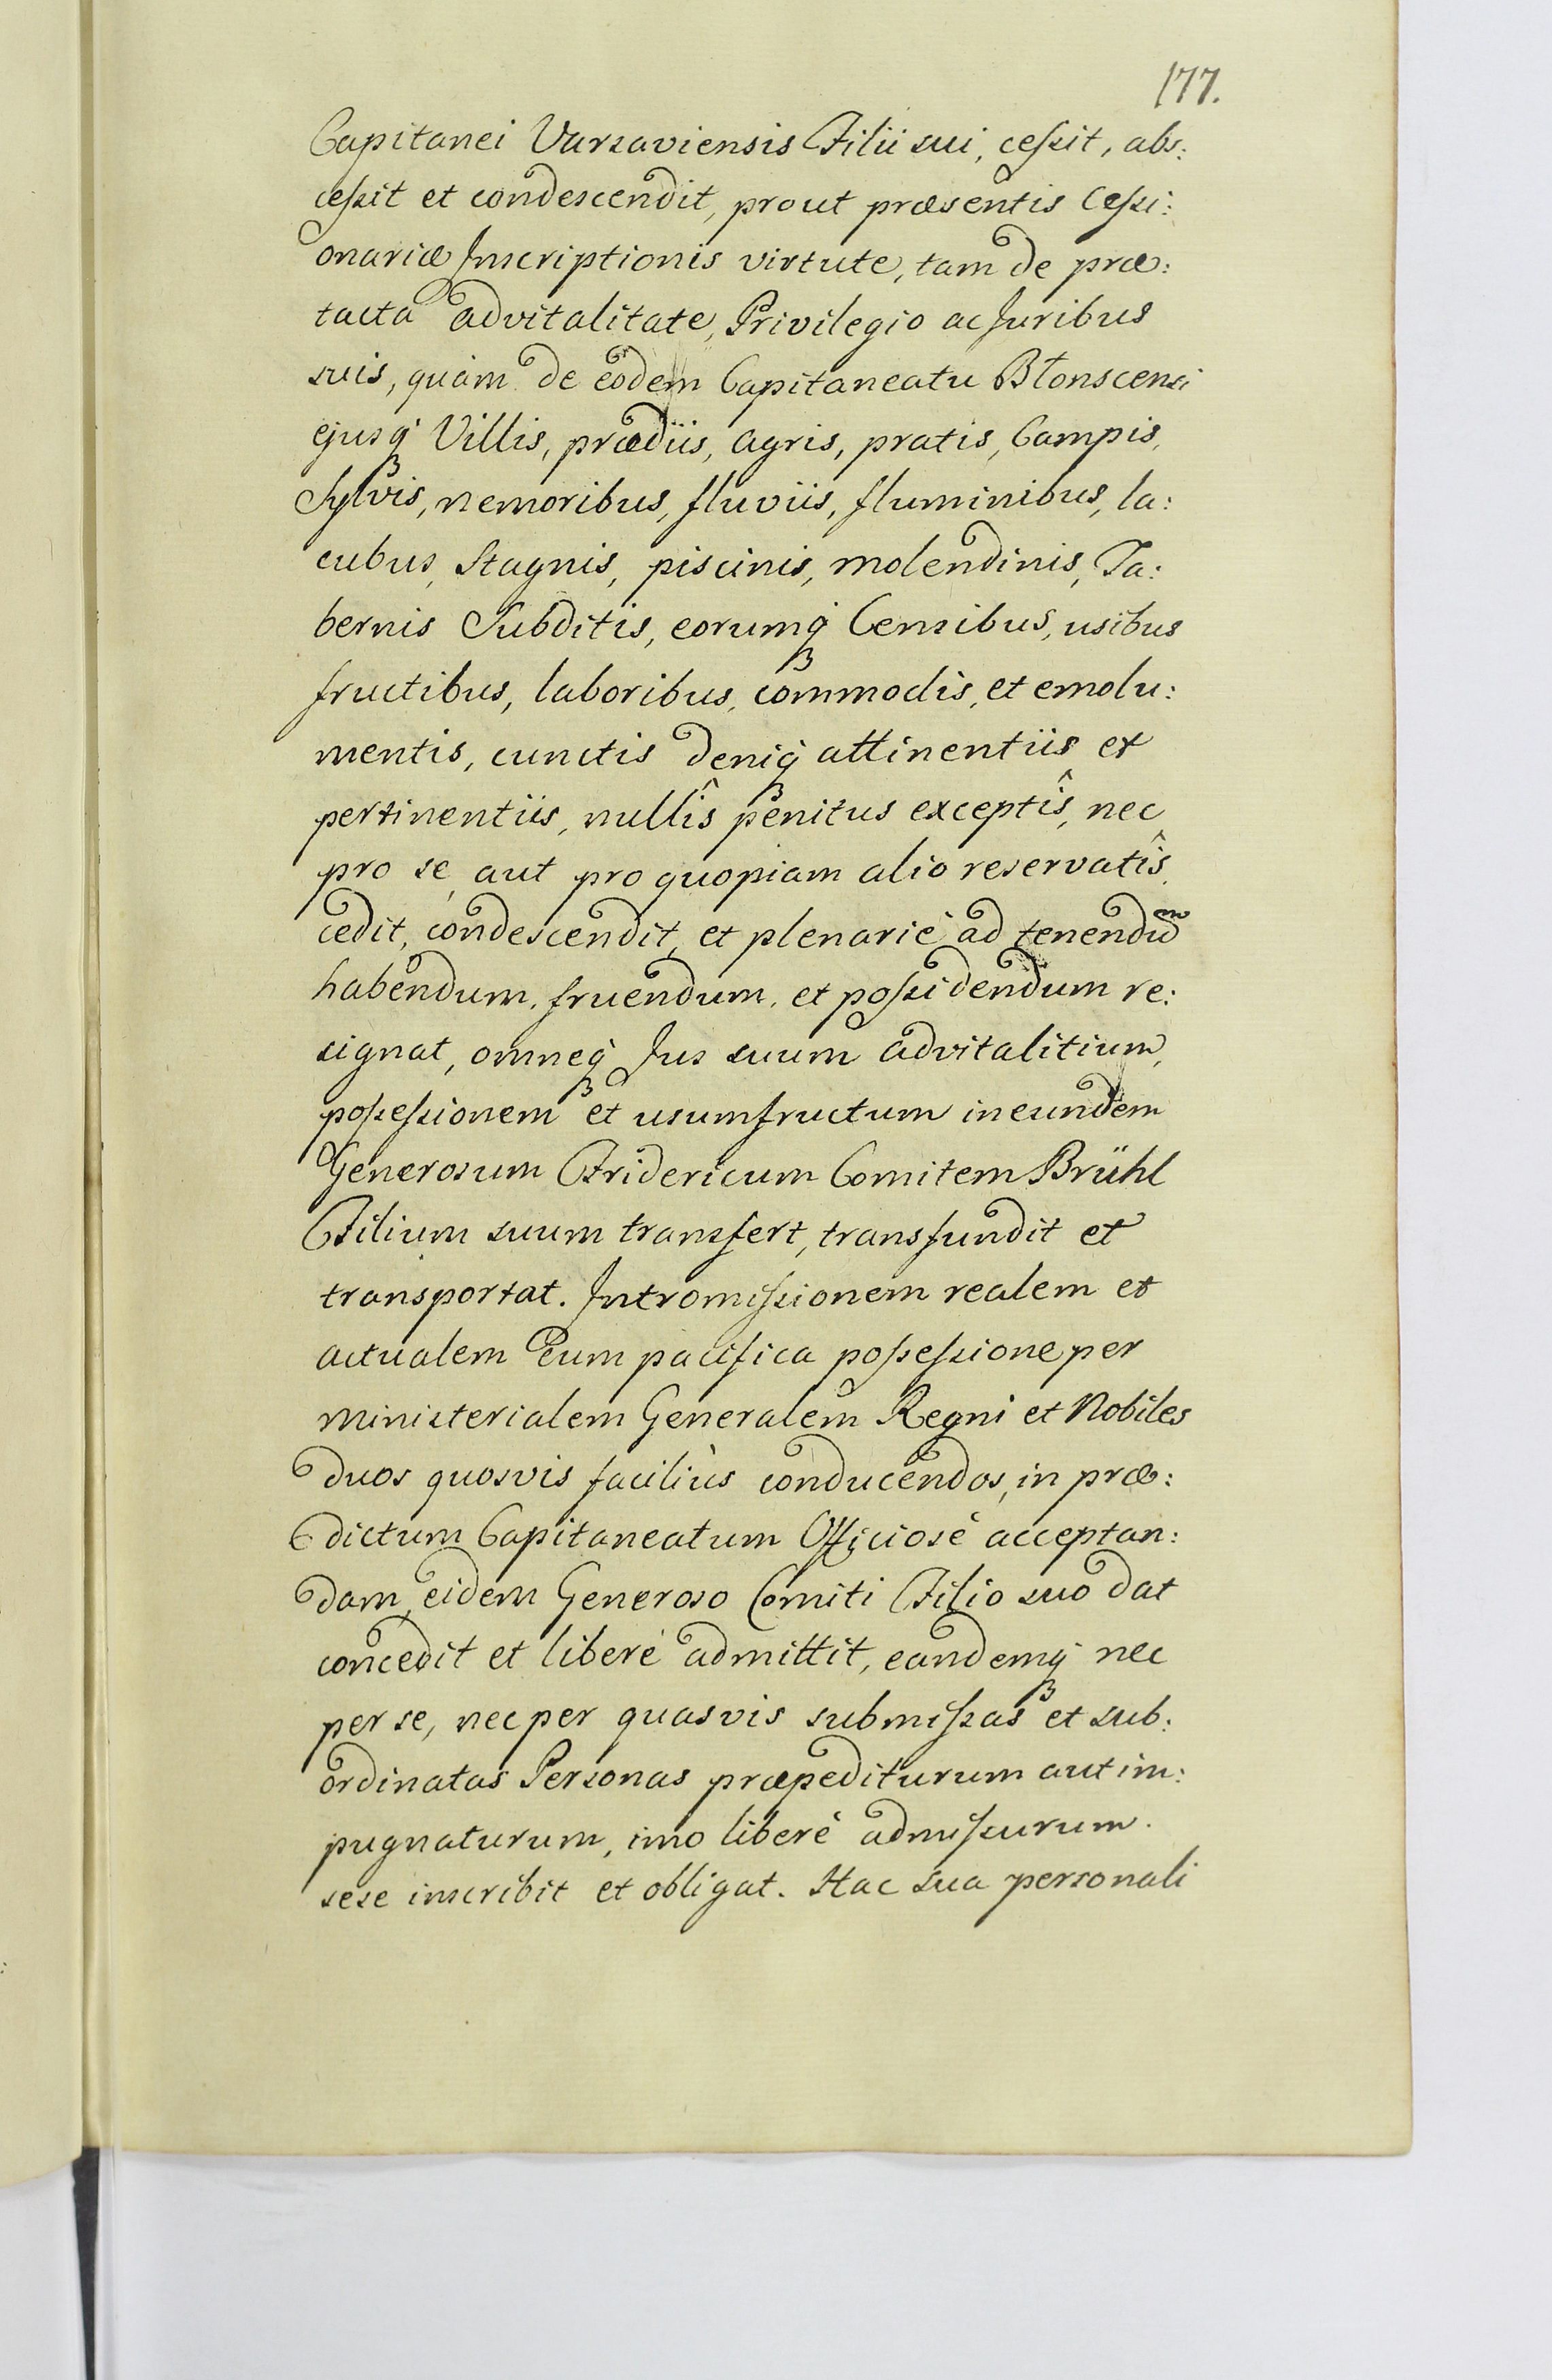 177.
Capitanei Varsaviensis Filii sui, cessit, abs:
cessit et condescendit, prout præsentis Cessi:
onariæ Inscriptionis virtute, tam de præ:
tacta advitalitate, Privilegio ac Juribus
suis, quàm de eodem Capitaneatu Błonscensi
ejusq3 Villis, prædiis, agris, pratis, Campis,
Sylvis, nemoribus, fluviis, fluminibus, la:
cubus, Stagnis, piscinis, molendinis, Ta:
bernis Subditis, eorumq3 Censibus, usibus
fructibus, laboribus, commodis, et emolu:
mentis, cunctis deniq3 attinentiis et
pertinentiis, nullîs penitus exceptîs, nec
pro se, aut pro quopiam alio reservatîs,
cedit, condescendit, et plenariè ad tenendum
habendum, fruendum, et possidendum re:
signat, omneq3 Jus suum advitalitium,
possessionem et usumfructum in eundem
Generosum Fridericum Comitem Brühl
Filium suum transfert, transfundit et
transportat. Intromissionem realem et
actualem cum pacifica possessione per
Ministerialem Generalem Regni et Nobiles
duos quosvis faciliùs conducendos, in præ:
dictum Capitaneatum Officiosè acceptan:
dam, eidem Generoso Comiti Filio suo dat
concedit et liberè admittit, eandemq3 nec
per se, nec per quasvis submissas et sub:
ordinatas Personas præpediturum aut im:
pugnaturum, imo liberè admissurum.
sese inscribit et obligat. Hac sua personali